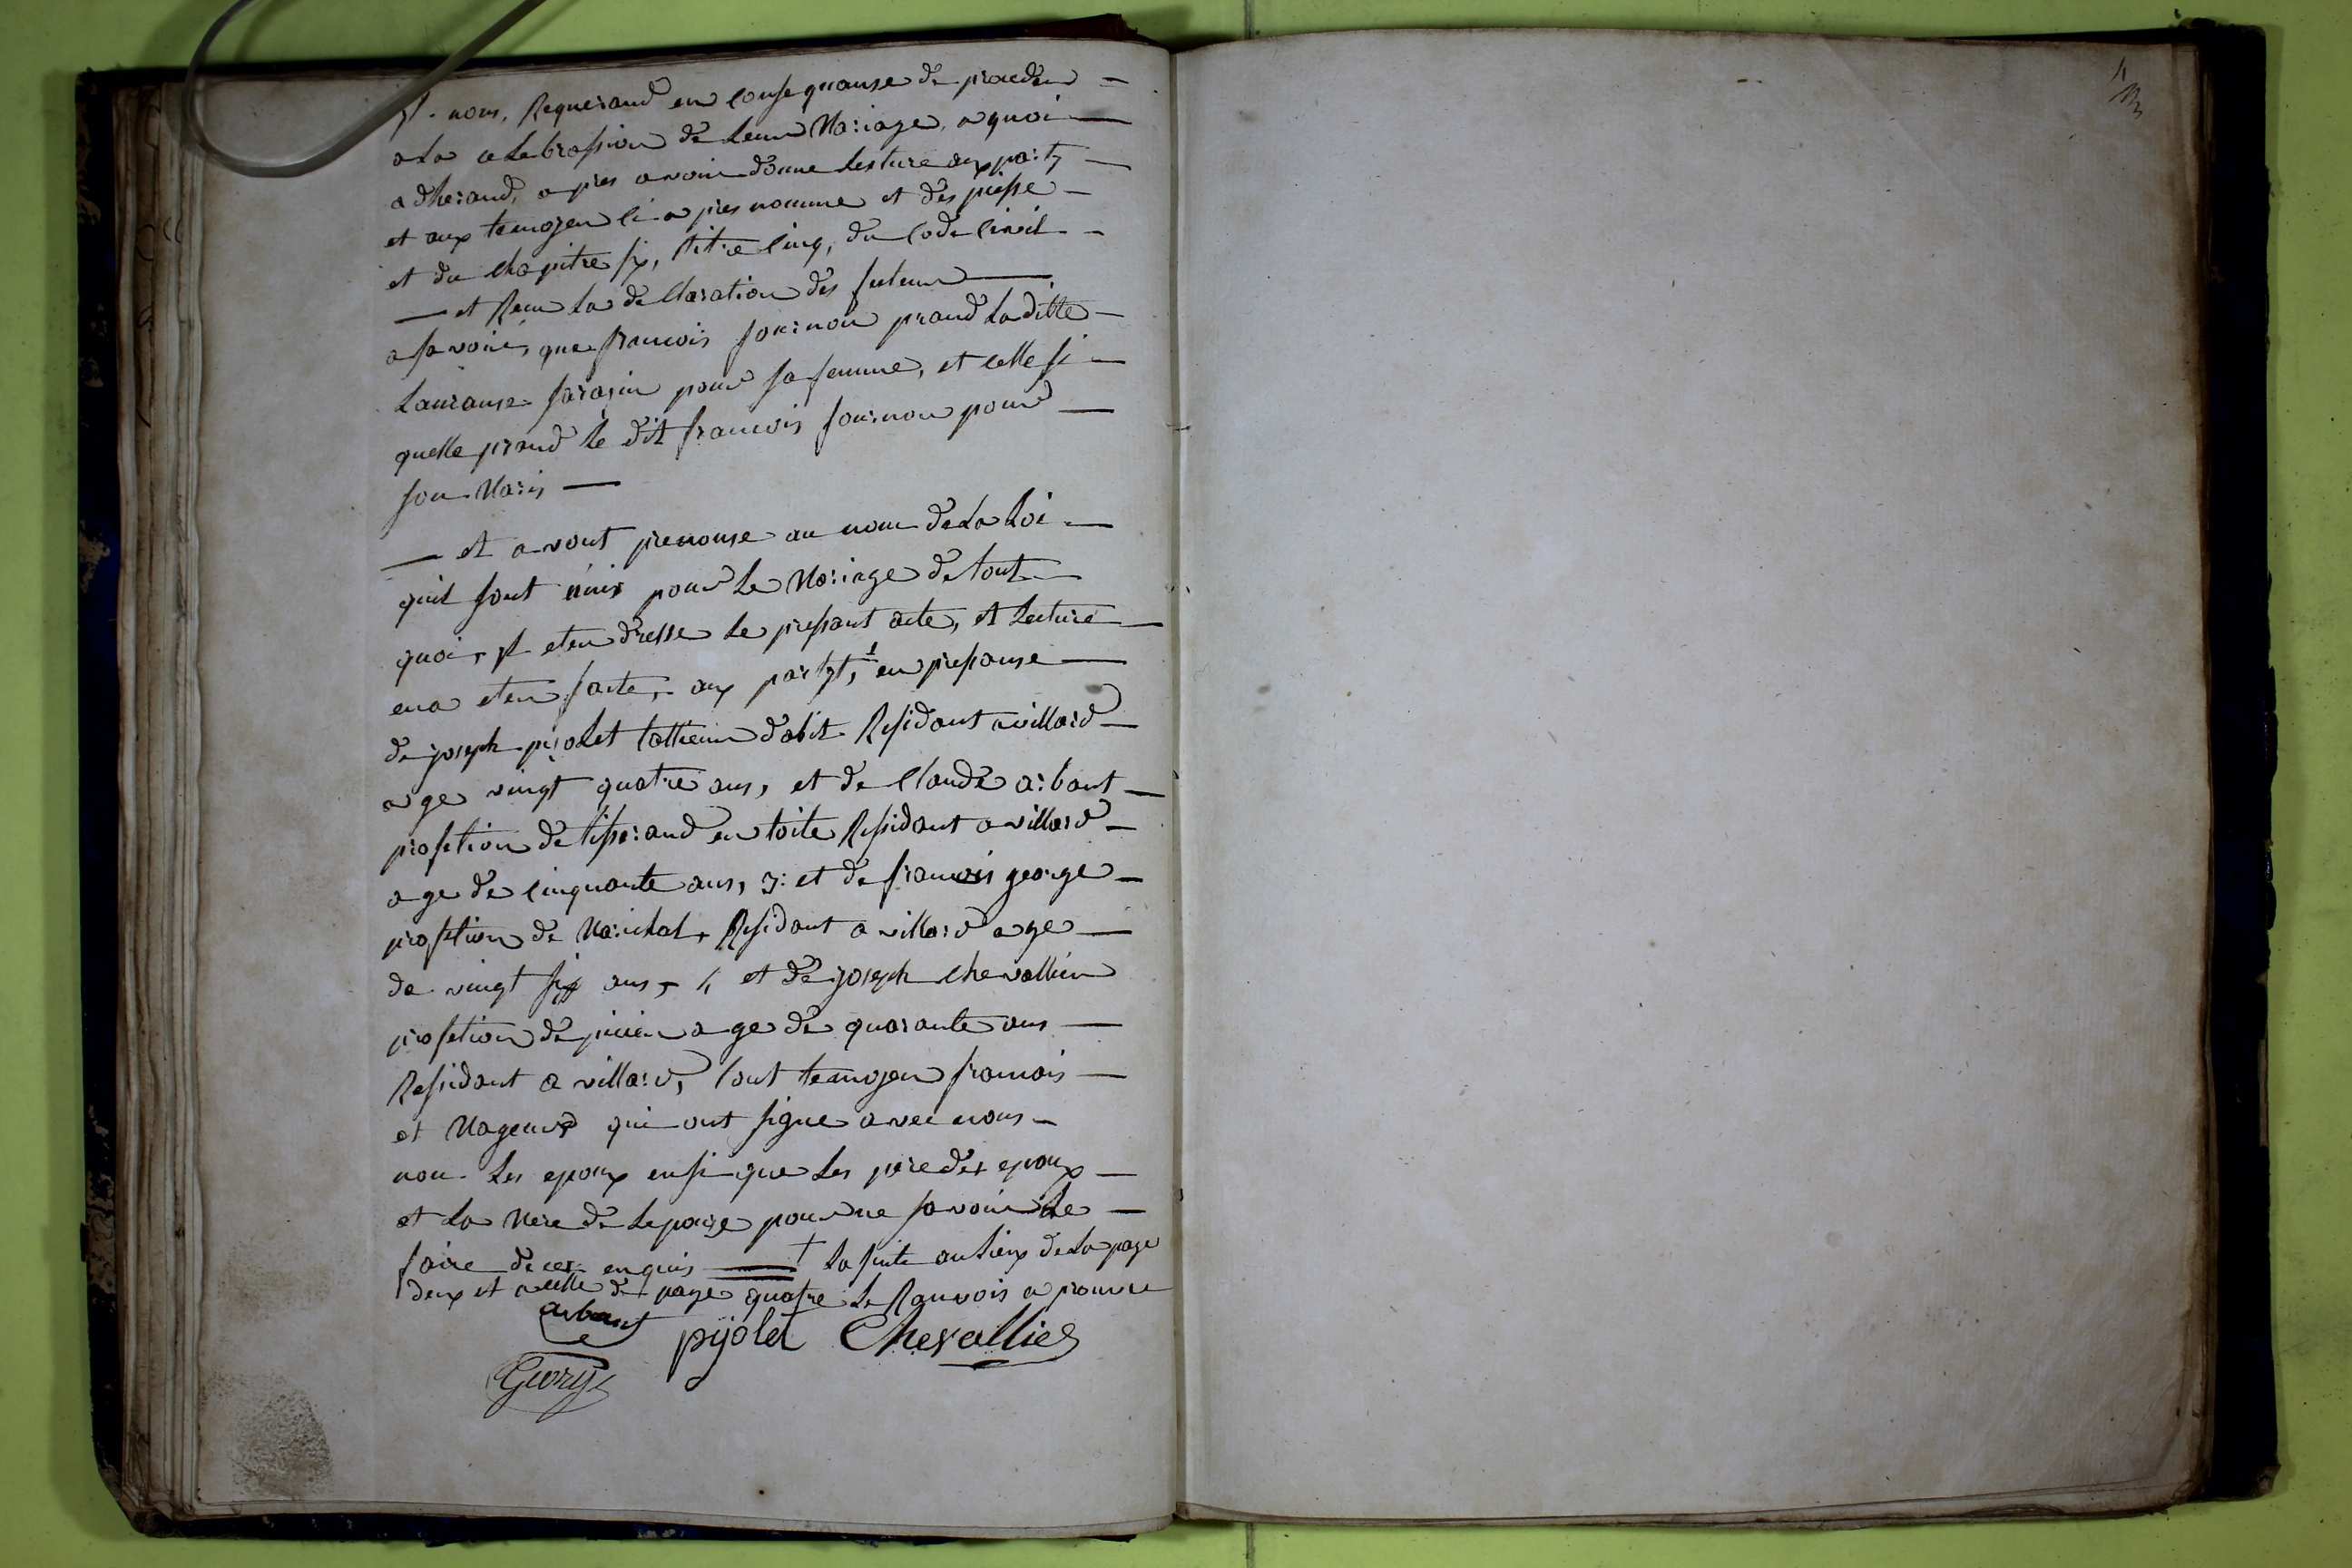 et nous, Requerand en consequanse de proceder —
a la celebrassion de leur Mariage, a quoi —
adherand, apres avoir donne lesture aux party —
et aux temojen ci apres nomme et des piesse —
et du chapitre six, titre cinq, du code civil —
— et Recu la declaration des futeur —
a savoir, que francois fournon prand la ditte —
Lauranse sarasin pour sa femme, et celle si —
quelle prand le dit francois fournon pour —
son Maris —
— et avont prenonse au nom de la loi —
quil sont unis pour le Mariage de tout —
quoi, et eten dresse le pressant acte, et lecture —
ena eten faite, aux partyt, 1 en pressanse —
de joseph pijolet tallieur dabit Residant a villard —
age vingt quatre ans, et de claude arbant —
profetion de tisserand en toile Residant a villard —
age de cinquante ans, 3: et de francois george —
profetion de Marichal, Residant a villard age —
de vingt six ans, 4 et de joseph chevallier
profetion de age de quarante ans —
Residant a villard, tout temojen francois —
et Mageur qui ont signe avec nous —
non les epoux ensi que les pere des epoux —
et la Mere de lepouse pour ne savoir le —
faire de ces enquis — + la suite au lieux de la page
deux et a celle de page quatre le Ranvois aprouve
arbant pijolet Chevallier
George